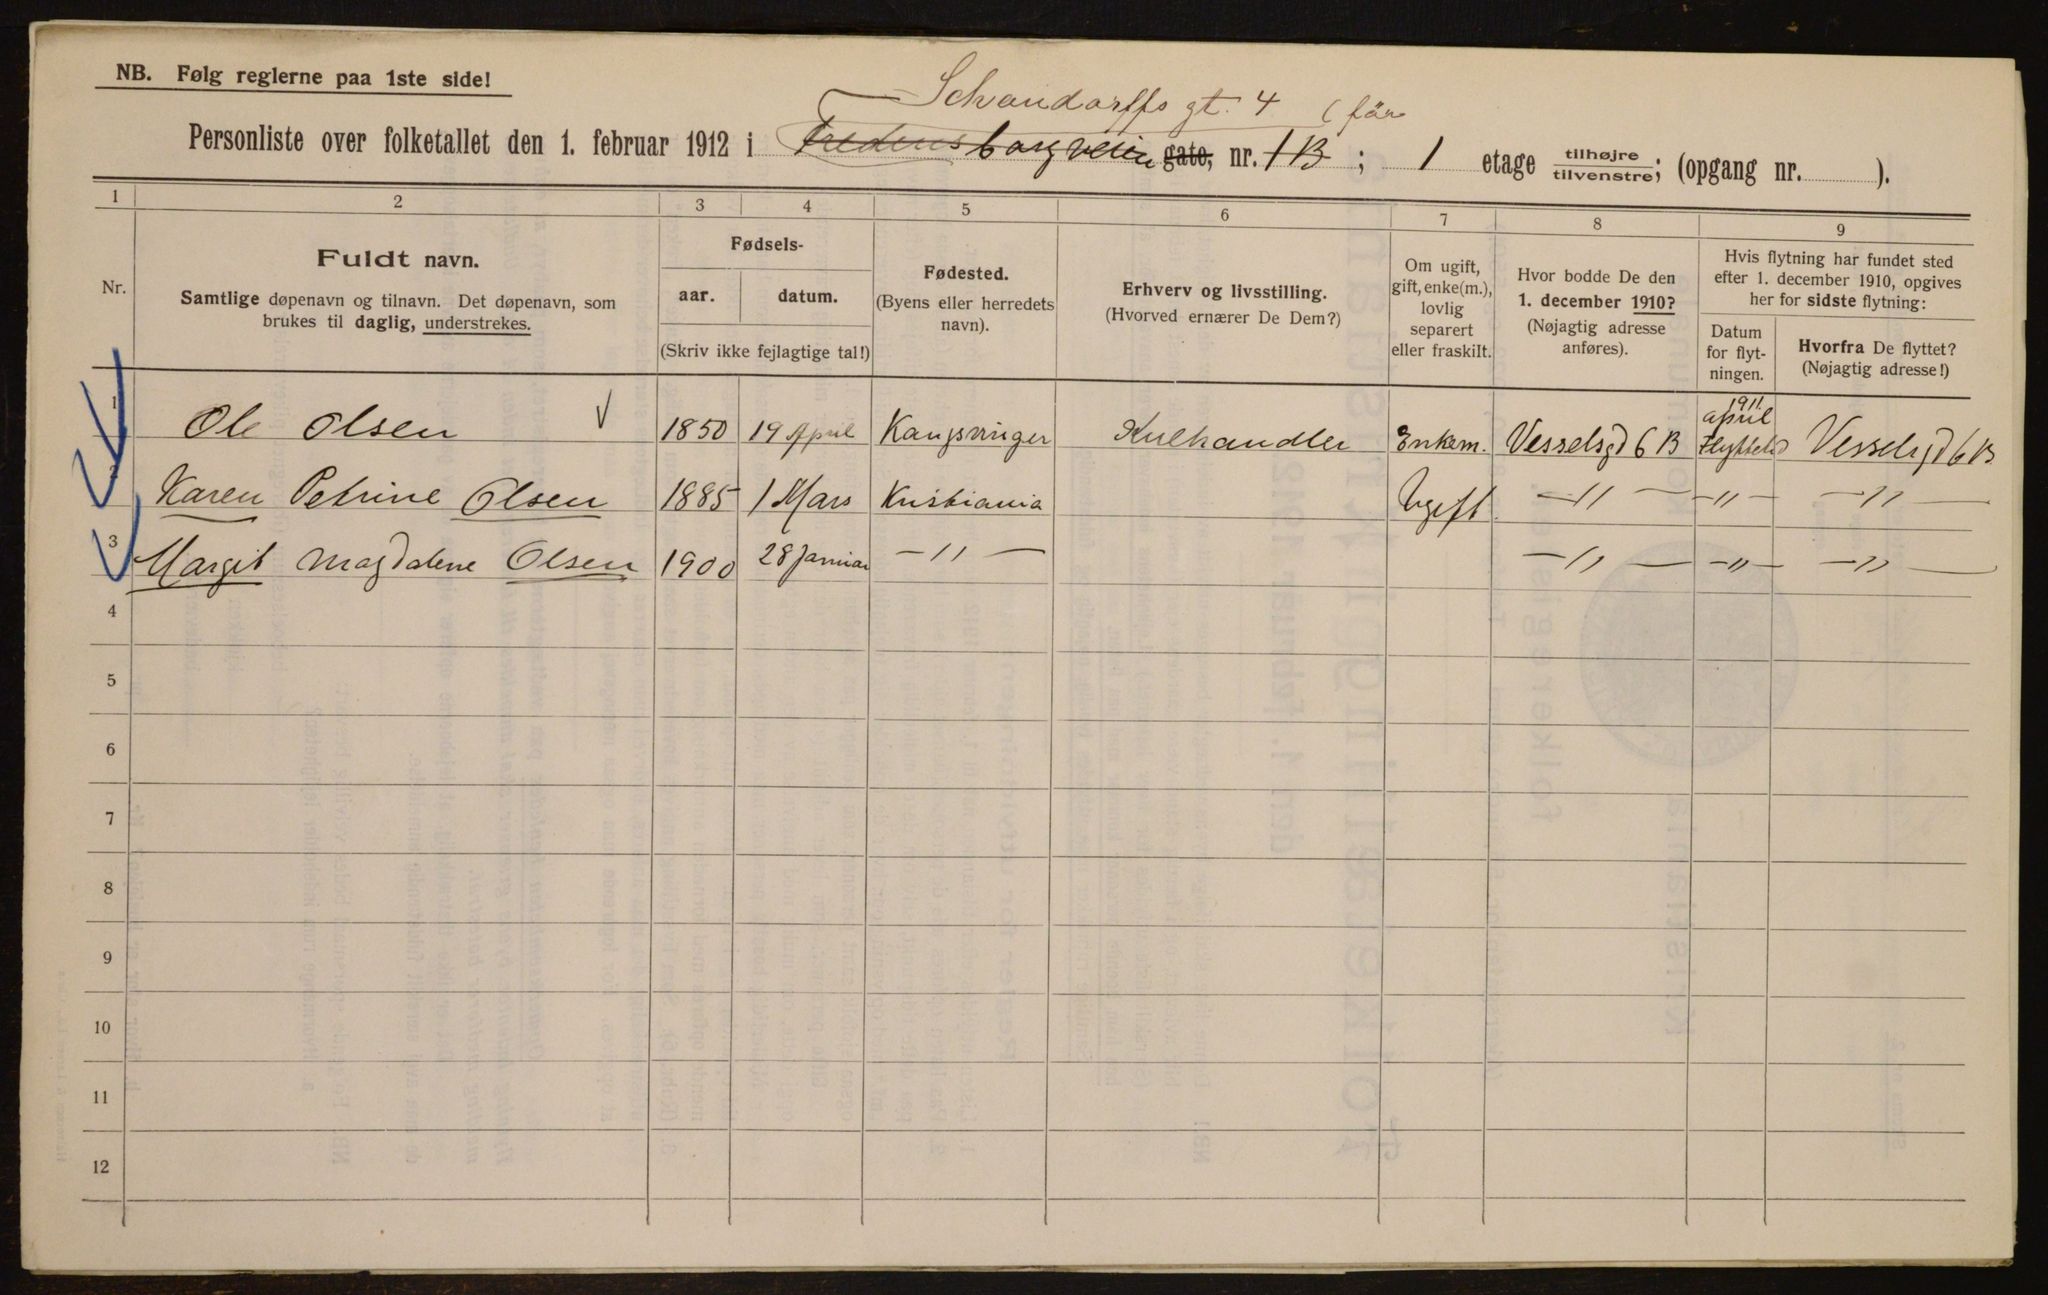 NB. Følg reglerne paa 1ste side!
Schandorffs gt. 4 (før
Personliste over folketallet den 1. februar 1912 i Fredensborgveien gate, nr. 1B; 1 etage tilhøjre tilvenstre; (opgang nr. ).
1 2 3 4 5 6 7 8 9
Nr.
Fuldt navn.
Samtlige døpenavn og tilnavn. Det døpenavn, som
brukes til daglig, understrekes.
Fødsels-
aar. datum.
(Skriv ikke fejlagtige tal!)
Fødested.
(Byens eller herredets
navn).
Erhverv og livsstilling.
(Hvorved ernærer De Dem?)
Om ugift,
gift, enke(m.),
lovlig
separert
eller fraskilt.
Hvor bodde De den
1. december 1910?
(Nøjagtig adresse
anføres).
Hvis flytning har fundet sted
efter 1. december 1910, opgives
her for sidste flytning:
Datum
for flyt-
ningen.
Hvorfra De flyttet?
(Nøjagtig adresse!)
1 Ole Olsen 1850 19 April Kongsvinger Kulhandler Enkem. Vesselsgd 6 B 1911 april Flyttet Vesselsgd 6 B
2 Karen Petrine Olsen 1885 1 Mars Kristiania Ugift —"— —"— —"—
3 Margit Magdalene Olsen 1900 28 Januar —"— —"— —"— —"—
4
5
6
7
8
9
10
11
12